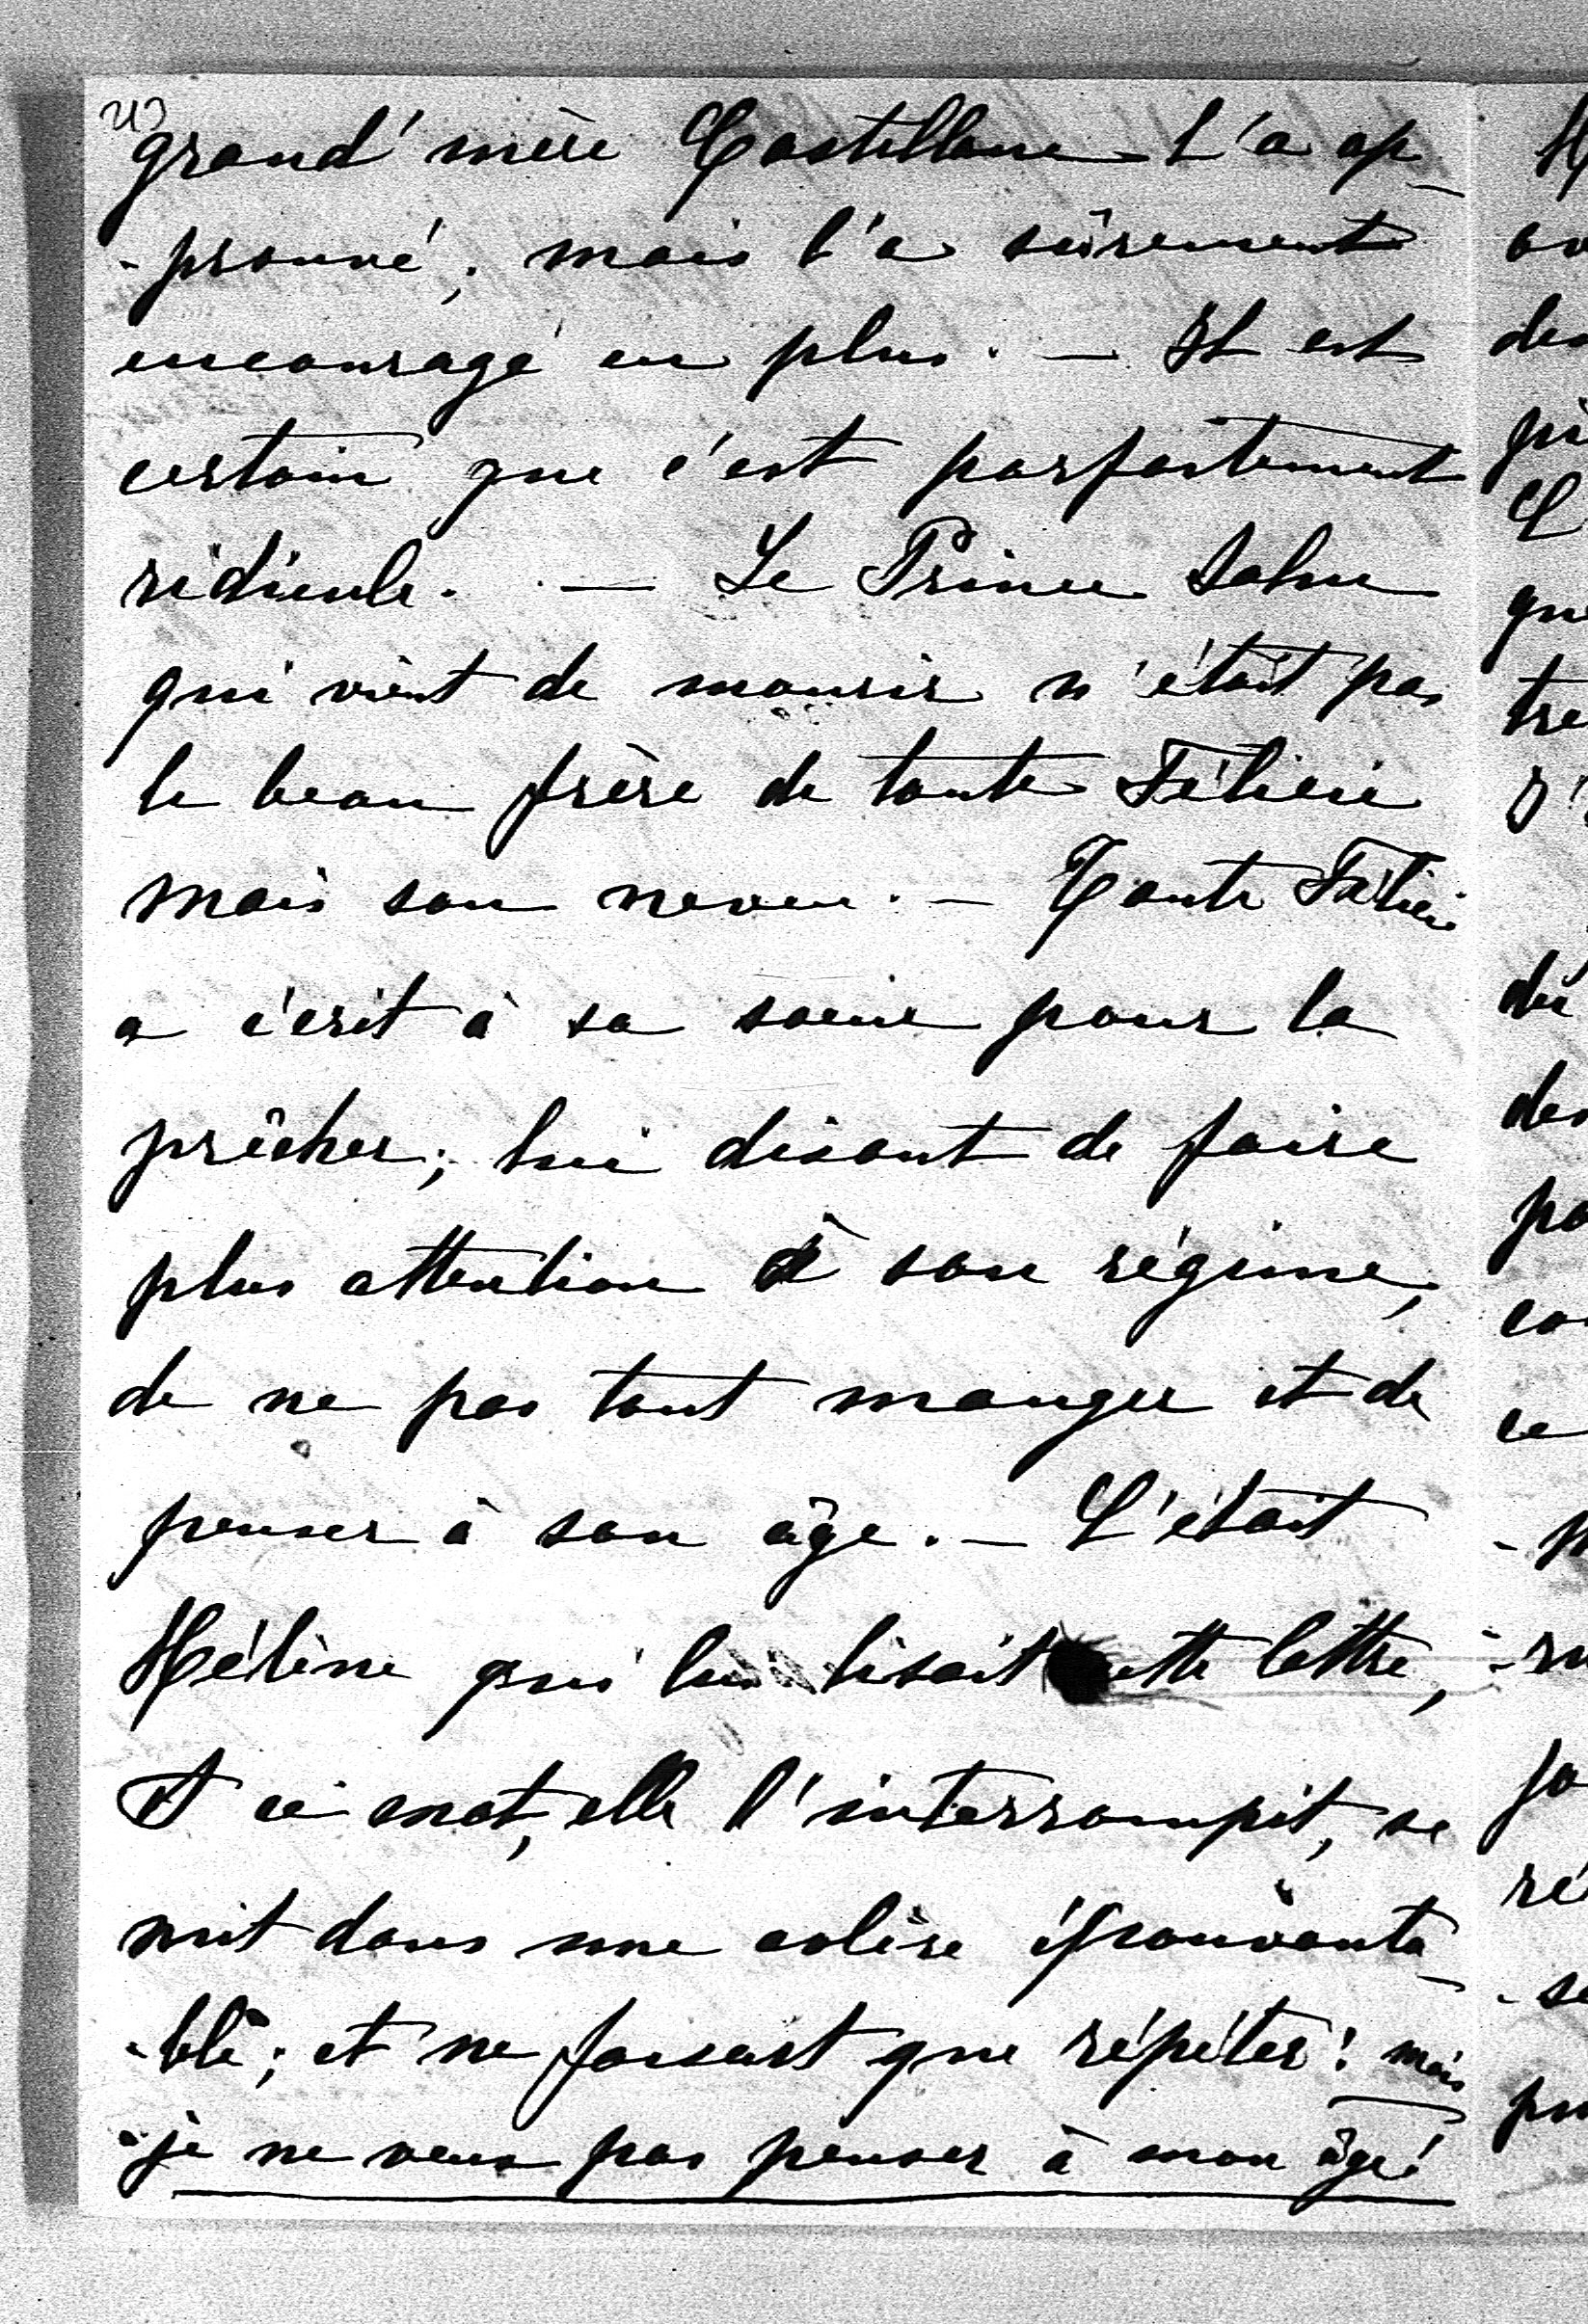 grand'mère Castellane - L'a ap-
-prouvé; mais l'a sûrement
encouragé en plus. — Il est
certain que c'est parfaitement
ridicule. — Le Prince Salm
qui vient de mourir n'était pas
le beau frère de tante Félicie
mais son neveu. — Tante Félicie
a écrit à sa soeur pour la
prêcher; lui disant de faire
plus attention à son régime,
de ne pas tant manger et de
penser à son âge. — C'était
Hélène qui lui lisait cette lettre,
A ce mot, elle l'interrompit, se
mit dans une colère épouvanta-
-ble; et ne faisait que répéter: mais
je ne veux pas penser à mon âge!